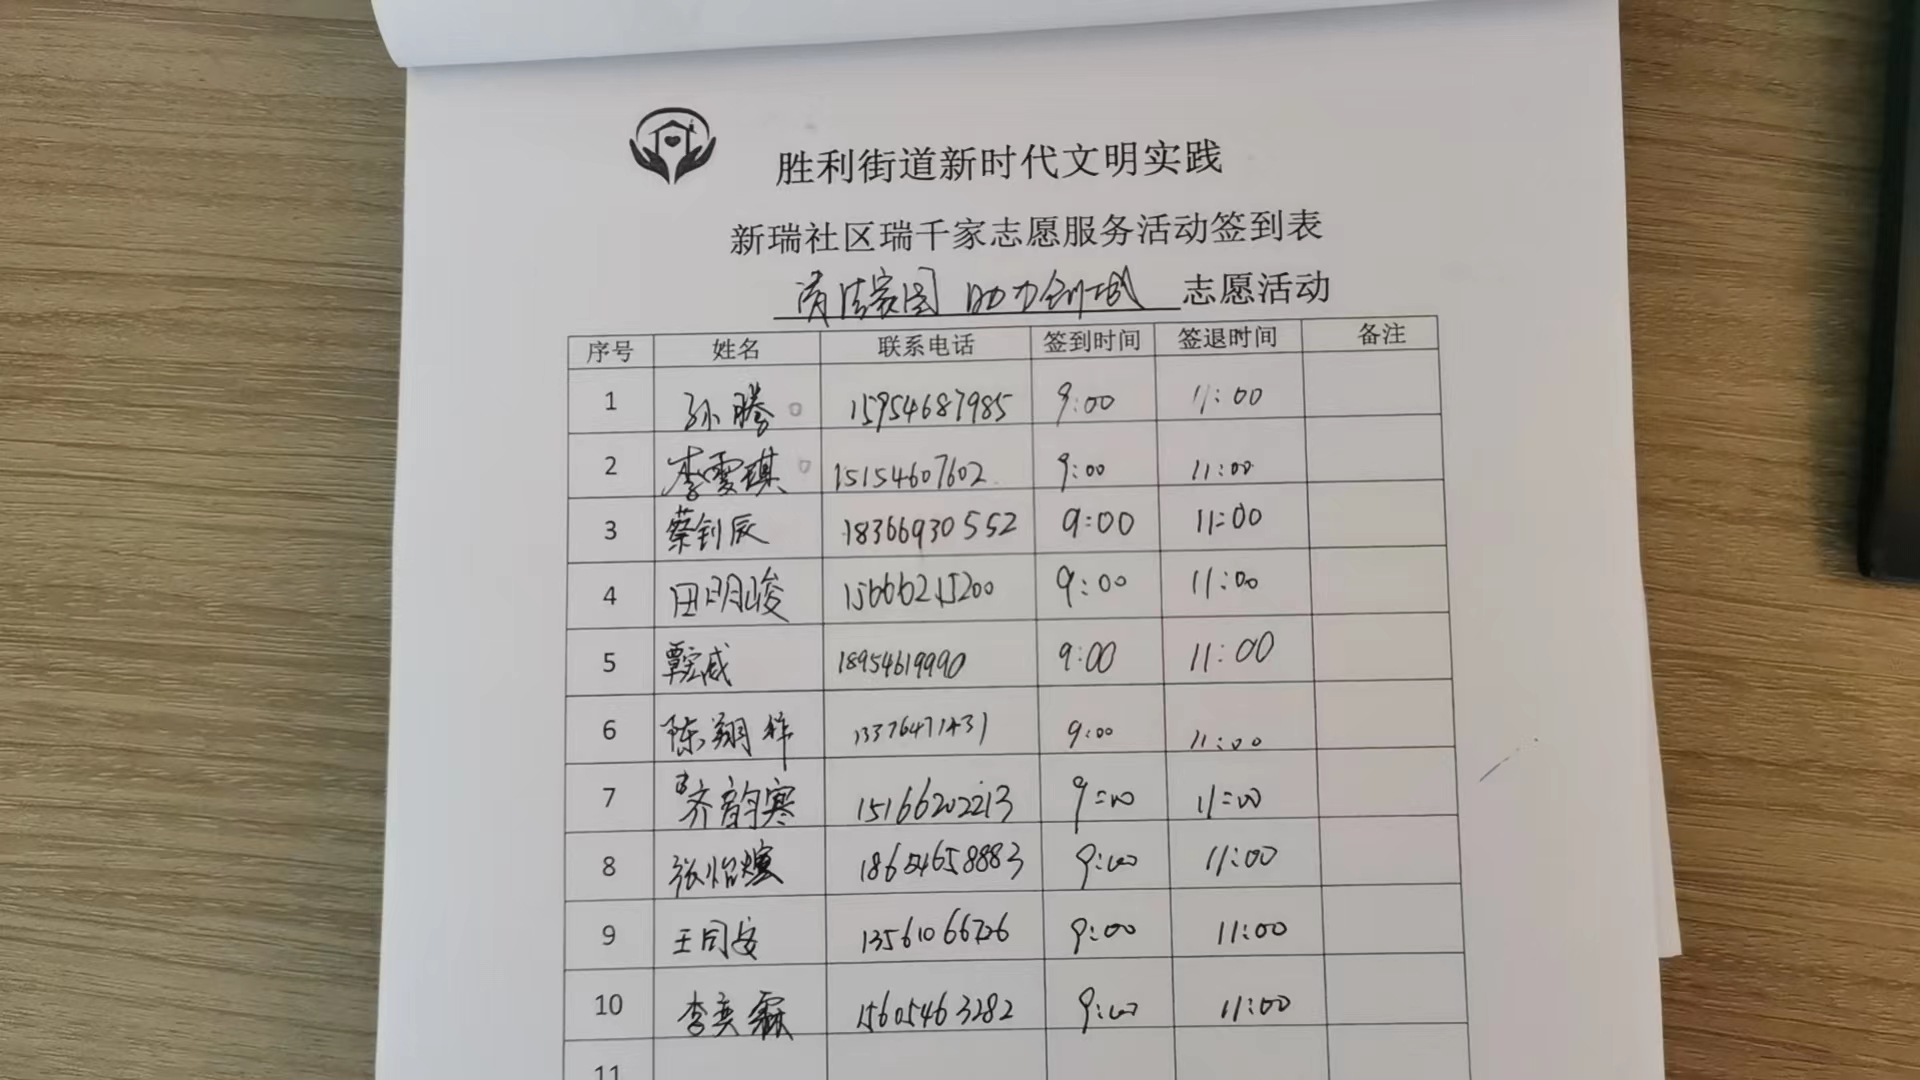 胜利街道新时代文明实践
新瑞社区瑞千家志愿服务活动签到表
清洁家园 助力创城 志愿活动
序号 姓名 联系电话 签到时间 签退时间 备注
1 孙腾 15954687985 9:00 11:00
2 李雯琪 15154607602 9:00 11:00
3 蔡钊辰 18366930552 9:00 11:00
4 田明峻 15666215200 9:00 11:00
5 覃宏威 18954619990 9:00 11:00
6 陈翔梓 13376471431 9:00 11:00
7 齐韵寒 15166202213 9:00 11:00
8 张怡煊 18654658883 9:00 11:00
9 王同安 9:00 11:00
10 李奕霖 15605463282 9:00 11:00
11